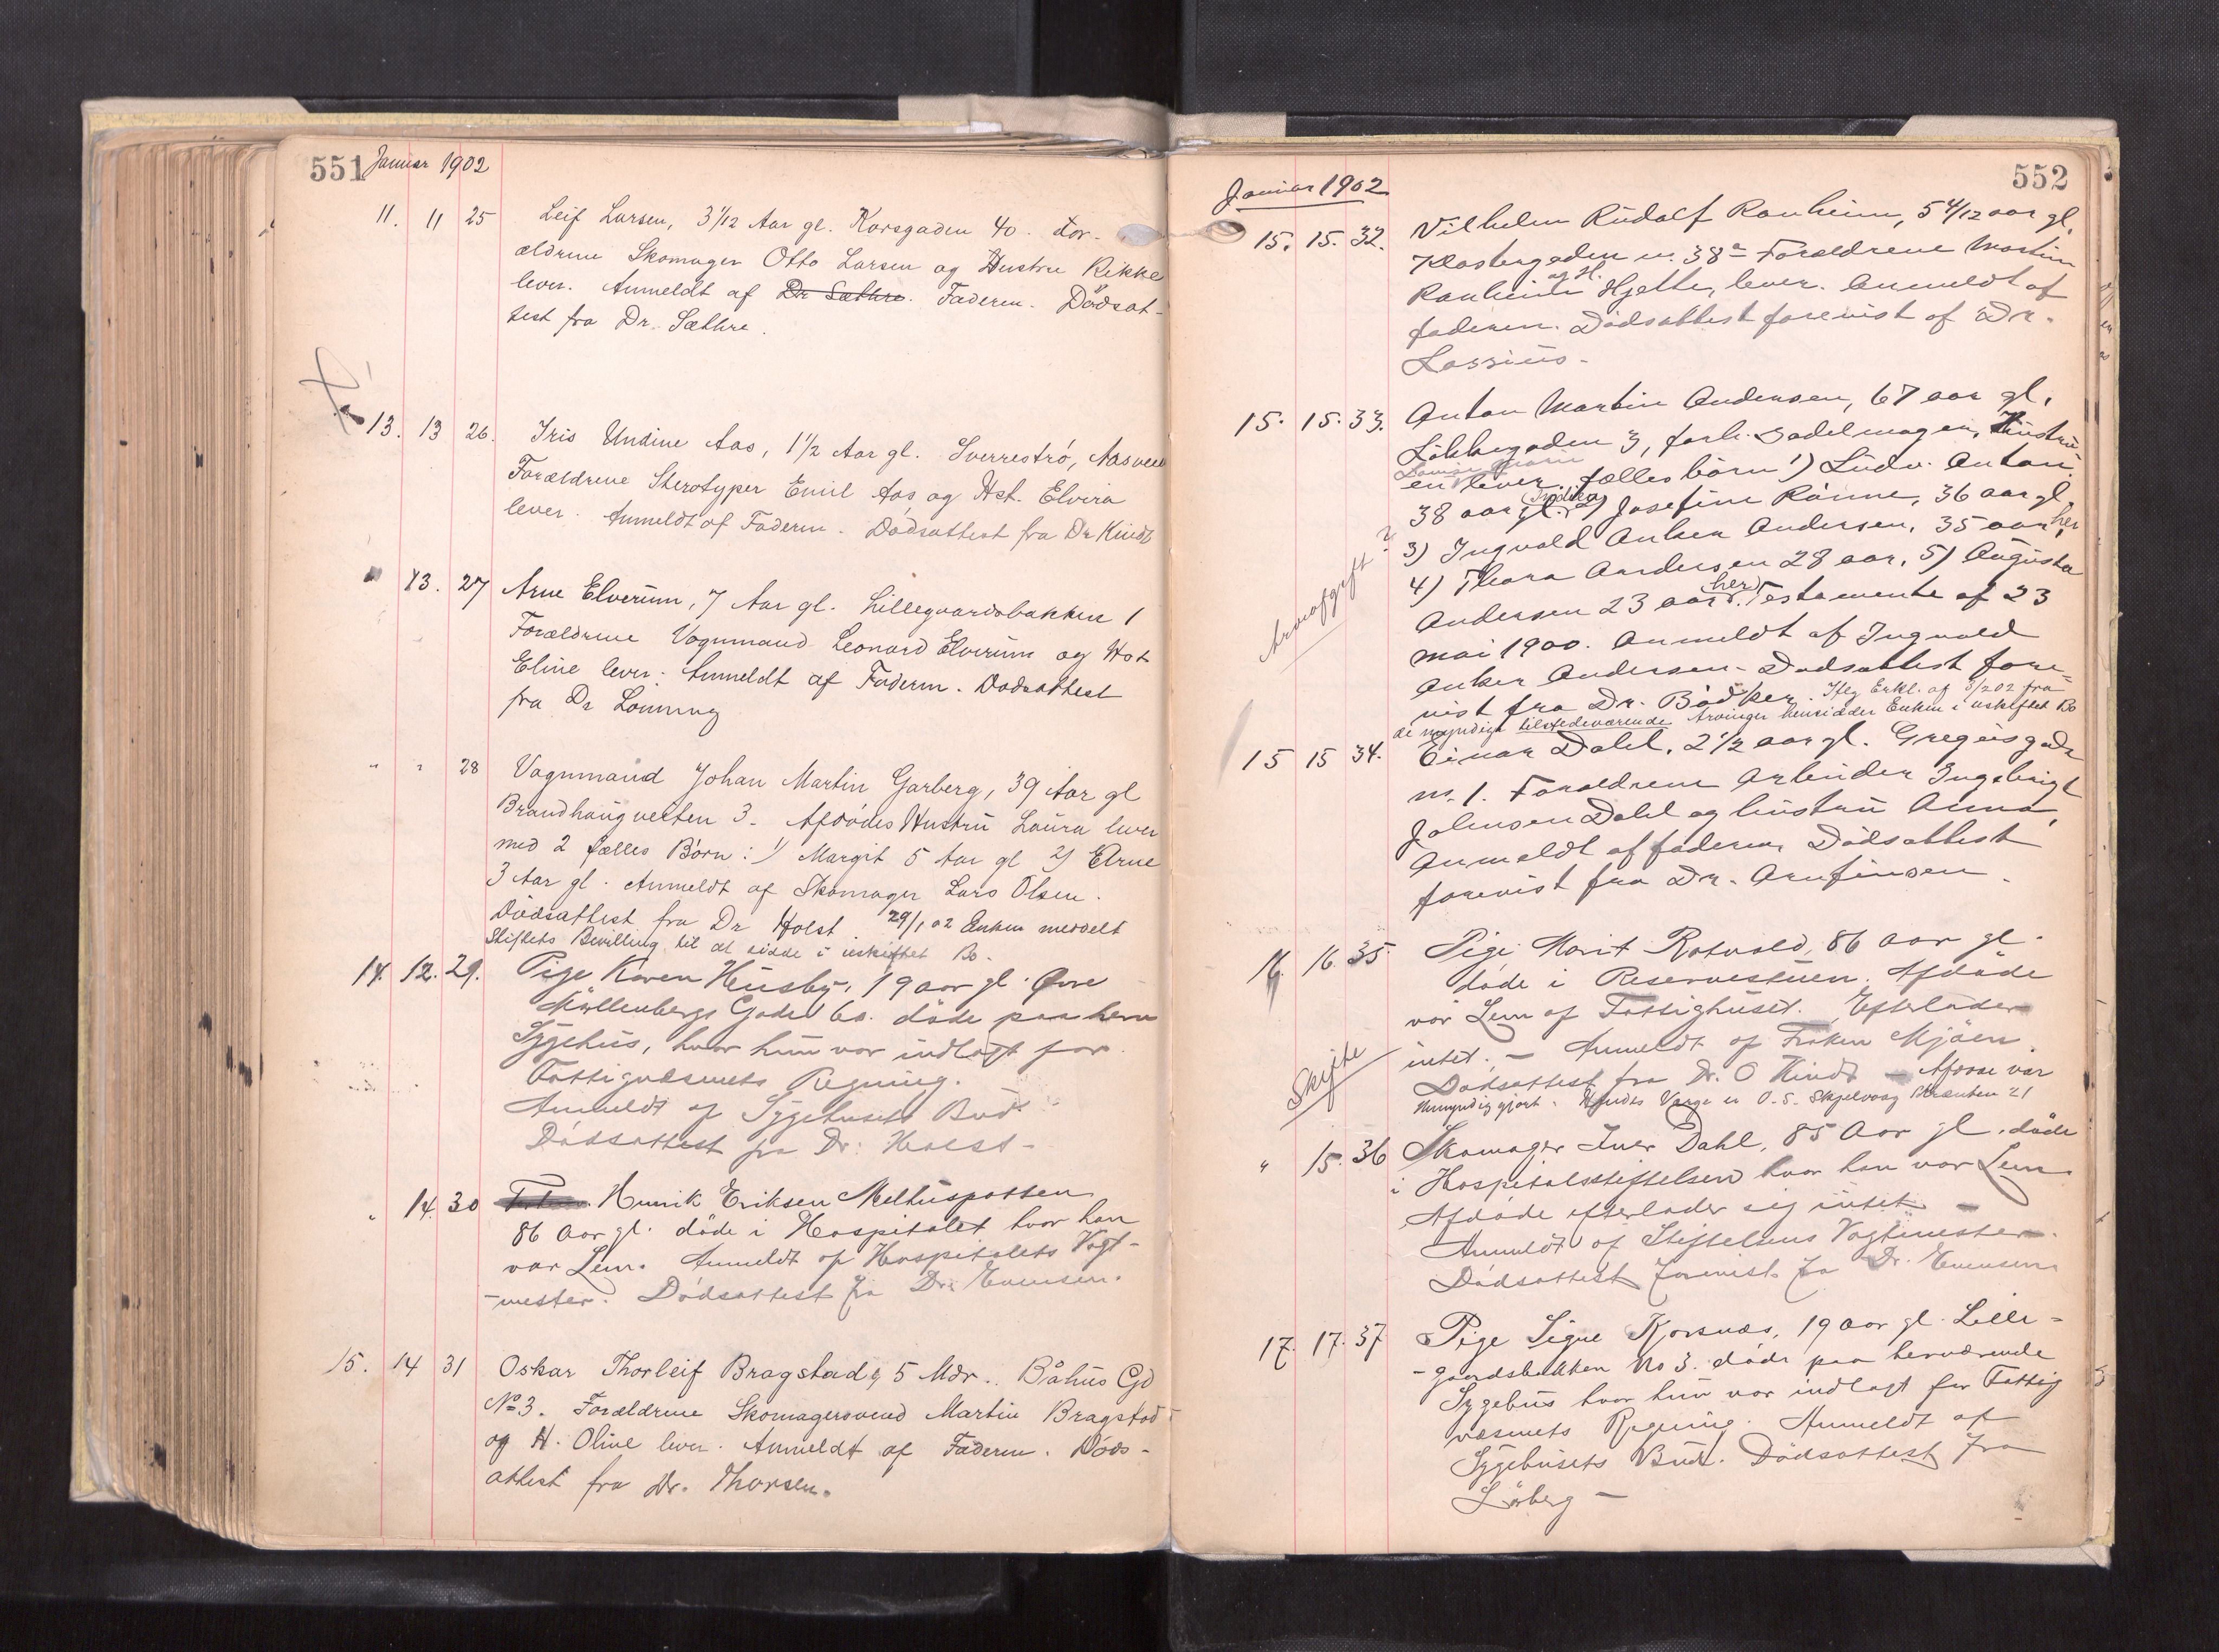 551 Januar 1902
11. 11 25 Leif Larsen, 3 1/12 Aar gl. Korsgaden 40. For-
ældrene Skomager Otto Larsen og Hustru Rikke
lever. Anmeldt af Dr Sæthre. Faderen. Dødsat-
test fra Dr. Sæthre.
13. 13 26. Iris Undine Aas, 1 1/2 Aar gl. Sverrestrø, Aasveien
Forældrene Sterotyper Emil Aas og Hst. Elvira
lever. Anmeldt af Faderen. Dødsattest fra Dr Kindt
" 13. 27 Arne Elverum, 7 Aar gl. Lillegaardsbakken 1
Forældrene Vognmand Leonard Elverum og Hst
Eline lever. Anmeldt af Faderen. Dødsattest
fra Dr Lønning
" " 28 Vognmand Johan Martin Garberg, 39 Aar gl
Brandhaugveiten 3. Afdødes Hustru Laura lever
med 2 fælles Børn: 1) Margit 5 Aar gl 2) Arne
3 Aar gl. Anmeldt af Skomager Lars Olsen.
Dødsattest fra Dr Holst. 29/1 02 Enken meddelt
Stiftets Bevilling til at sidde i uskiftet Bo.
14. 12. 29. Pige Karen Husby, 19 aar gl. Øvre
Møllenbergs Gade 60. døde paa herv
Sygehus, hvor hun var indlagt for
Fattigvæsenets Regning.
Anmeldt af Sygehusets Bud.
Dødsattest fra Dr. Holst -
" 14. 30 Henrik Eriksen Melhuspotten
86 Aar gl. døde i Hospitalet hvor han
var Lem. Anmeldt af Hospitalets Vagt-
-mester. Dødsattest fra Dr. Evensen.
15. 14 31 Oskar Thorleif Bragstad, 5 Mdr.. Båhus Gd
No 3. Forældrene Skomagersvend Martin Bragstad
og H. Oline lever. Anmeldt af Faderen. Døds-
attest fra Dr. Thorsen.
552
Januar 1902
15. 15. 32. Vilhelm Rudolf Ranheim, 5 4/12 aar gl.
Klostergaden nr. 38a Forældrene Martin
Ranheim og H. Hjette, lever. Anmeldt af
faderen. Dødsattest forevist af Dr.
Lossius -
15. 15. 33. Anton Martin Andersen, 67 aar gl.
Løkkegaden 3, forh. Sadelmager, Hustru
en lever. fælles børn 1) Ludv. Anton
38 aar gl. 2) Josefine Rønne, 36 aar gl.
3) Ingvald Anker Andersen, 35 aar her,
4) Thora Andersen 28 aar, 5) Augusta
Andersen 23 aar her. Testamente af 23
mai 1900. Anmeldt af Ingvald
Anker Andersen - Dødsattest fore-
vist fra Dr. Bødtker. Iflg Erkl. af 3/2 02 fra
de myndige tilstedeværende Arvinger hensidder Enken i uskiftet Bo
Arveafgift ?
15 15 34. Einar Dahl, 2 1/2 aar gl. Gregusgade
nr. 1. Forældrene Arbeider Ingebrigt
Johnsen Dahl og hustru Anna,
Anmeldt af faderen Dødsattest
forevist fra Dr. Arnfinsen.
16. 16. 35. Pige Marit Rotvold, 86 Aar gl.
døde i Reservestuen. Afdøde
var Lem af Fattighuset. Efterlader
intet. - Anmeldt af Frøken Mjøen.
Dødsattest fra Dr. O Kindt - Afdøde var
Umyndiggjort. Hendes Værge er O. S. Skjelvaag Kranben 21
Skifte
" 15. 36 Skomager Iver Dahl, 85 Aar gl. døde
i Hospitalsstiftelsen hvor han var Lem.
Afdøde efterlader sig intet -
Anmeldt af Stiftelsens Vagtmester.
Dødsattest forevist fra Dr. Evensen
17. 17. 37 Pige Signe Korsnæs, 19 Aar gl. Lille-
-gaardsbakken No 3. døde paa herværende
Sygehus hvor hun var indlagt for Fattig
væsenets Regning. Anmeldt af
Sygehusets Bud. Dødsattest fra
Lørberg -